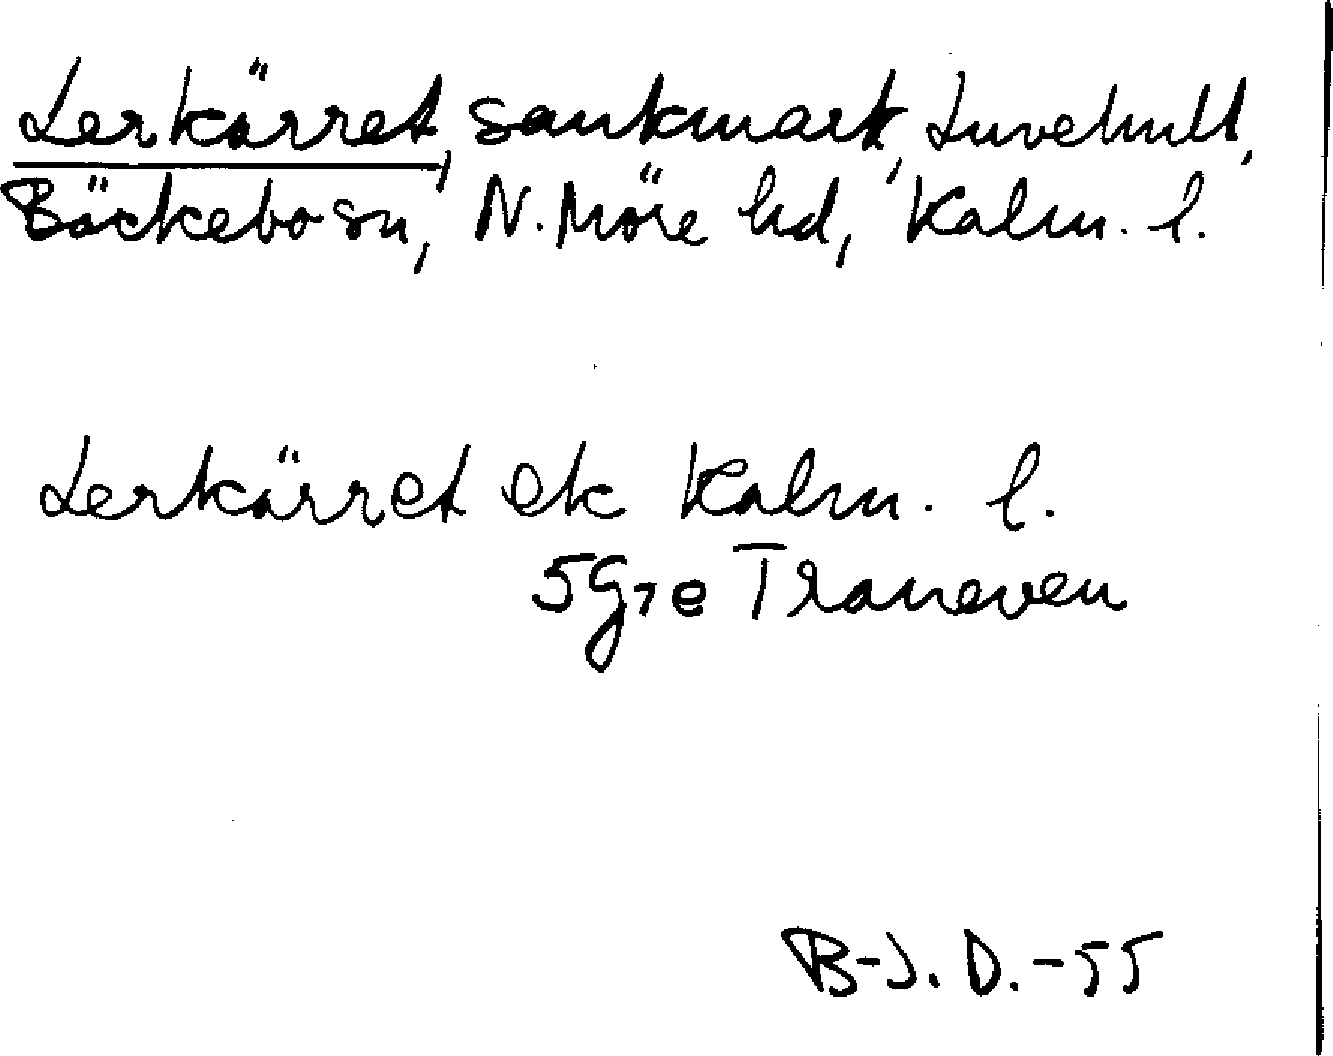 Lerkärret, sankmark, Luvehult,
Bäckebo sn, N. Möre hd, Kalm. l.
Lerkärret ek Kalm. l.
5G7e Traneven
B-J. D. -55